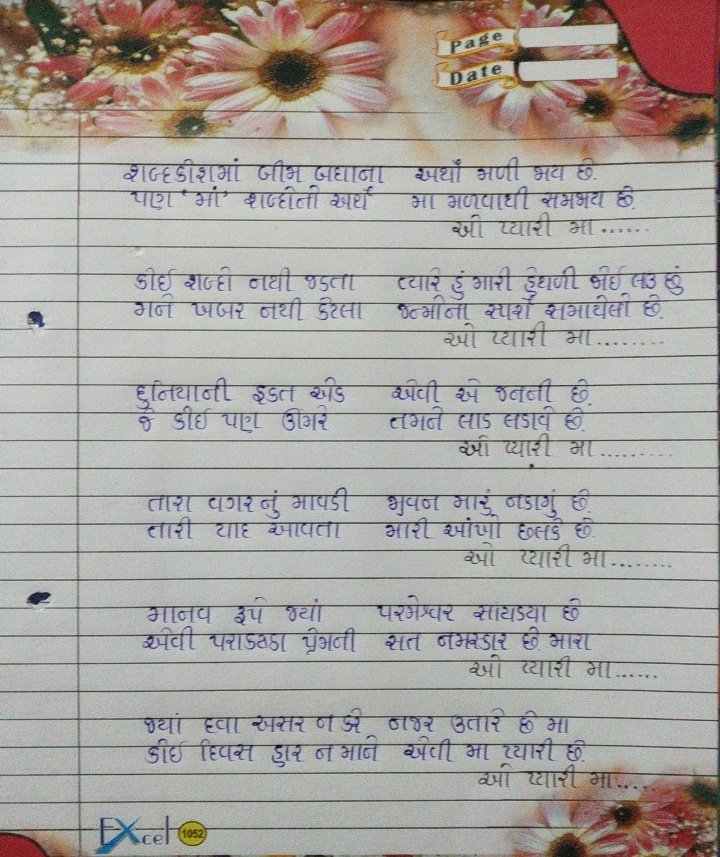 Page
Date
શબ્દકોશમાં બીજા બધાના અર્થો મળી જાય છે.
પણ 'માં' શબ્દોનો અર્થ મા મળવાથી સમજાય છે.
ઓ પ્યારી મા......
કોઈ શબ્દો નથી જડતા ત્યારે હું મારી હથેળી જોઈ લઉ છું
મને ખબર નથી કેટલા જન્મોના સ્પર્શ સમાયેલો છે.
ઓ પ્યારી મા........
દુનિયાની ફકત એક એવી એ જનની છે.
જે કોઈ પણ ઊંમરે તમને લાડ લડાવે છે.
ઓ પ્યારી મા.........
તારા વગર નું માવડી જીવન મારું નકામું છે.
તારી યાદ આવતા મારી આંખો છલકે છે.
ઓ પ્યારી મા........
માનવ રૂપે જ્યાં પરમેશ્વર સાચડયા છે
એવી પરાકાષ્ઠા પ્રેમની સત નમસ્કાર છે મારા
ઓ પ્યારી મા......
જ્યાં દવા અસર ન કરે નજર ઉતારે છે મા
કોઈ દિવસ હાર ન માને એવી મા પ્યારી છે.
ઓ પ્યારી મા.....
Excel 1052